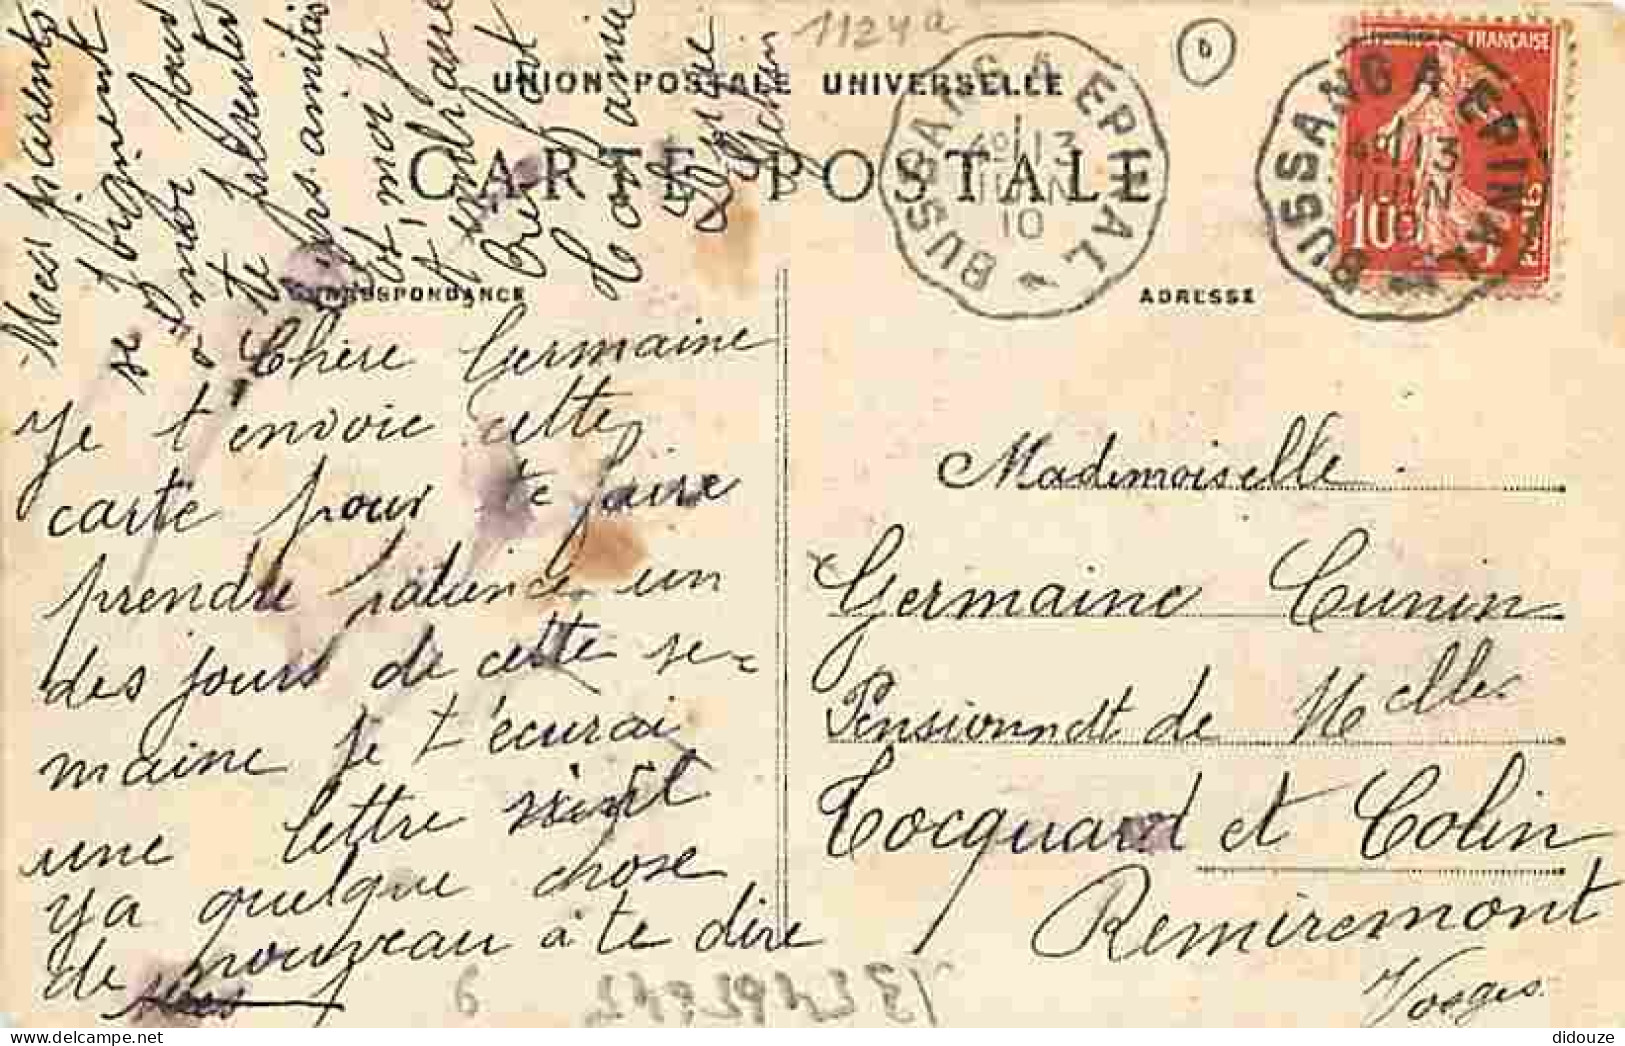 1124a
6
UNION POSTALE UNIVERSELLE
CARTE POSTALE
BUSSANG A EPINAL
4e 13
JUIN
10
BUSSANG A EPINAL
4e 13
JUIN
FRANÇAISE
10
CORRESPONDANCE
ADRESSE
Chère Germaine
Je t'envoie cette
carte pour te faire
prendre patience un
des jours de cette se-
maine je t'écurai
une lettre
ya quelque chose
de nouveau à te dire
Mes parents
se joignent
à moi pour
te présenter
leurs amitiés
et moi je
t'embrasse
bien fort
Ton amie
Mademoiselle
Germaine Cunin
Pensionnat de Melles
Tocquard et Colin
Remiremont
Vosges
didouze